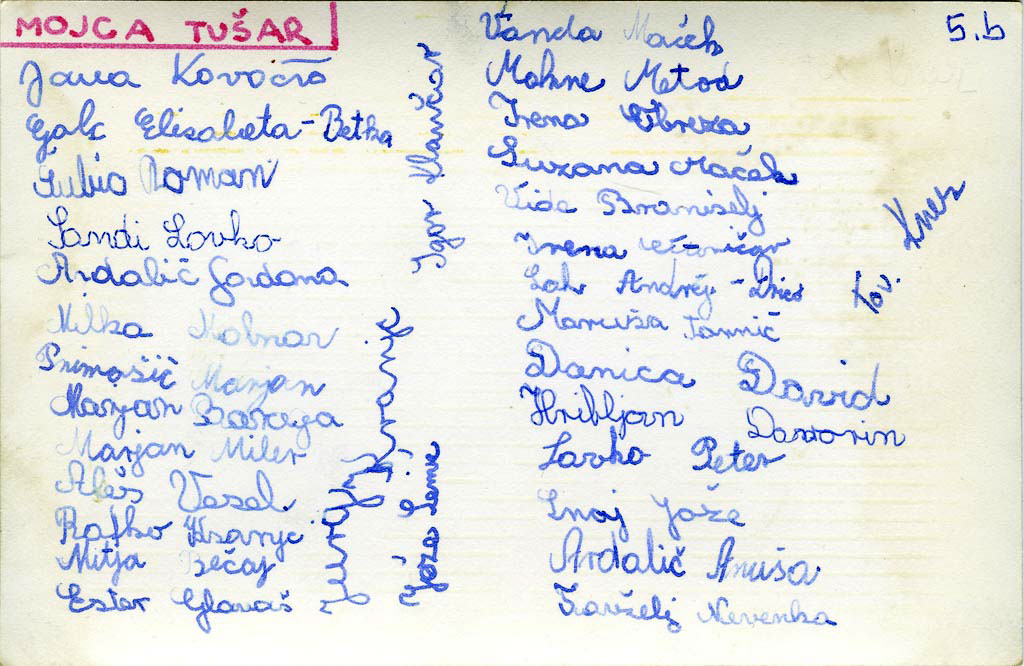 MOJCA TUŠAR
5.b
Jana Kovočič
Golc Elizabeta-Betka
Šubic Roman
Sandi Lovko
Ardalić Gordana
Milka Molnar
Primošič Marjan
Marjan Baraga
Marjan Miler
Aleš Vesel
Rafko Hsanje
Mitja Bečaj
Ester Glavaš
Juvanje
Jože
Igor Klančar
Vanda Maček
Mohne Metod
Irena Obreza
Suzana Maček
Vida Braniselj
Irena
Lah Andrej -
Maruša Tomič
Danica David
Hribljan Davorin
Lavko Peter
Snoj Jože
Ardalić Anuša
Zavželj Nevenka
Tov. Knez